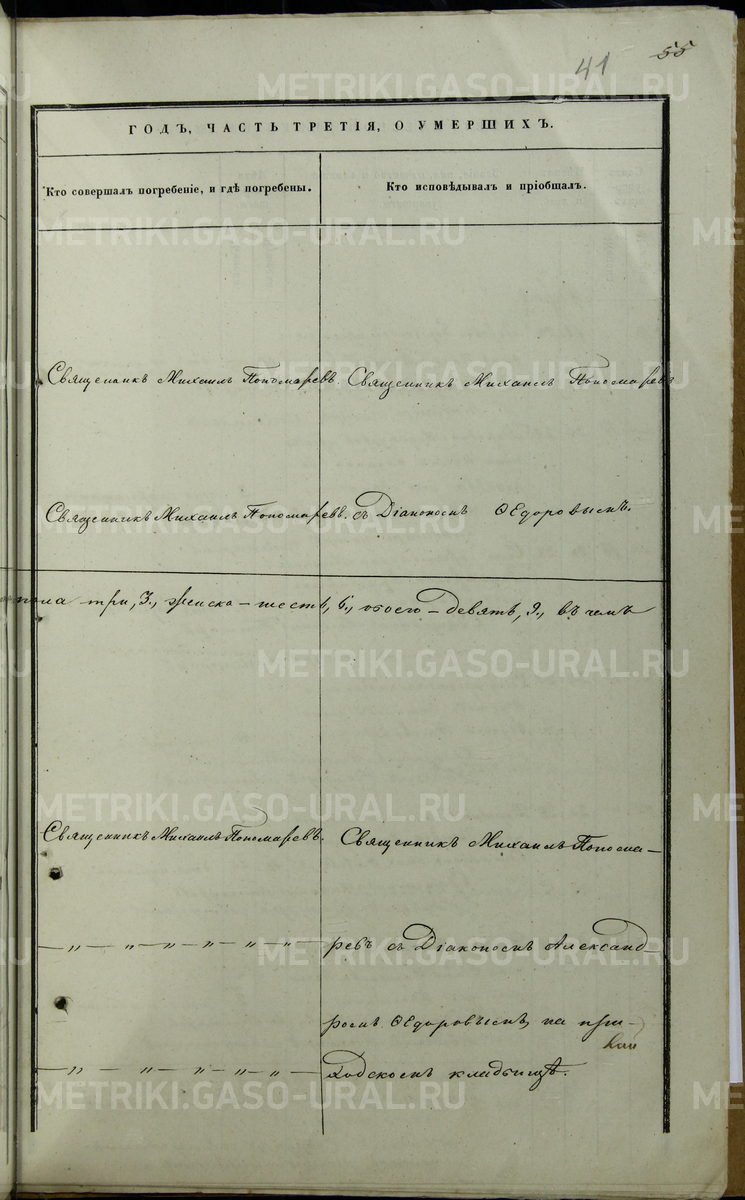 41 55
ГОДЪ, ЧАСТЬ ТРЕТІЯ, О УМЕРШИХЪ.
Кто совершалъ погребеніе, и гдѣ погребены.
Кто исповѣдывалъ и пріобщалъ.
Священникъ Михаилъ Пономаревъ. Священникъ Михаилъ Пономаревъ
Священникъ Михаилъ Пономаревъ. съ Діакономъ Ѳедоровымъ.
пола три, 3., женска – шесть, 6., обоего – девять, 9., въ чемъ
Священникъ Михаилъ Пономаревъ. Священникъ Михаилъ Понома–
— „ — „ — „ — „ — „ — „ — ревъ съ Діакономъ Александ–
ромъ Ѳедоровымъ, на при–
— „ — „ — „ — „ — „ — „ — ходскомъ кладбищѣ.
METRIKI.GASO-URAL.RU